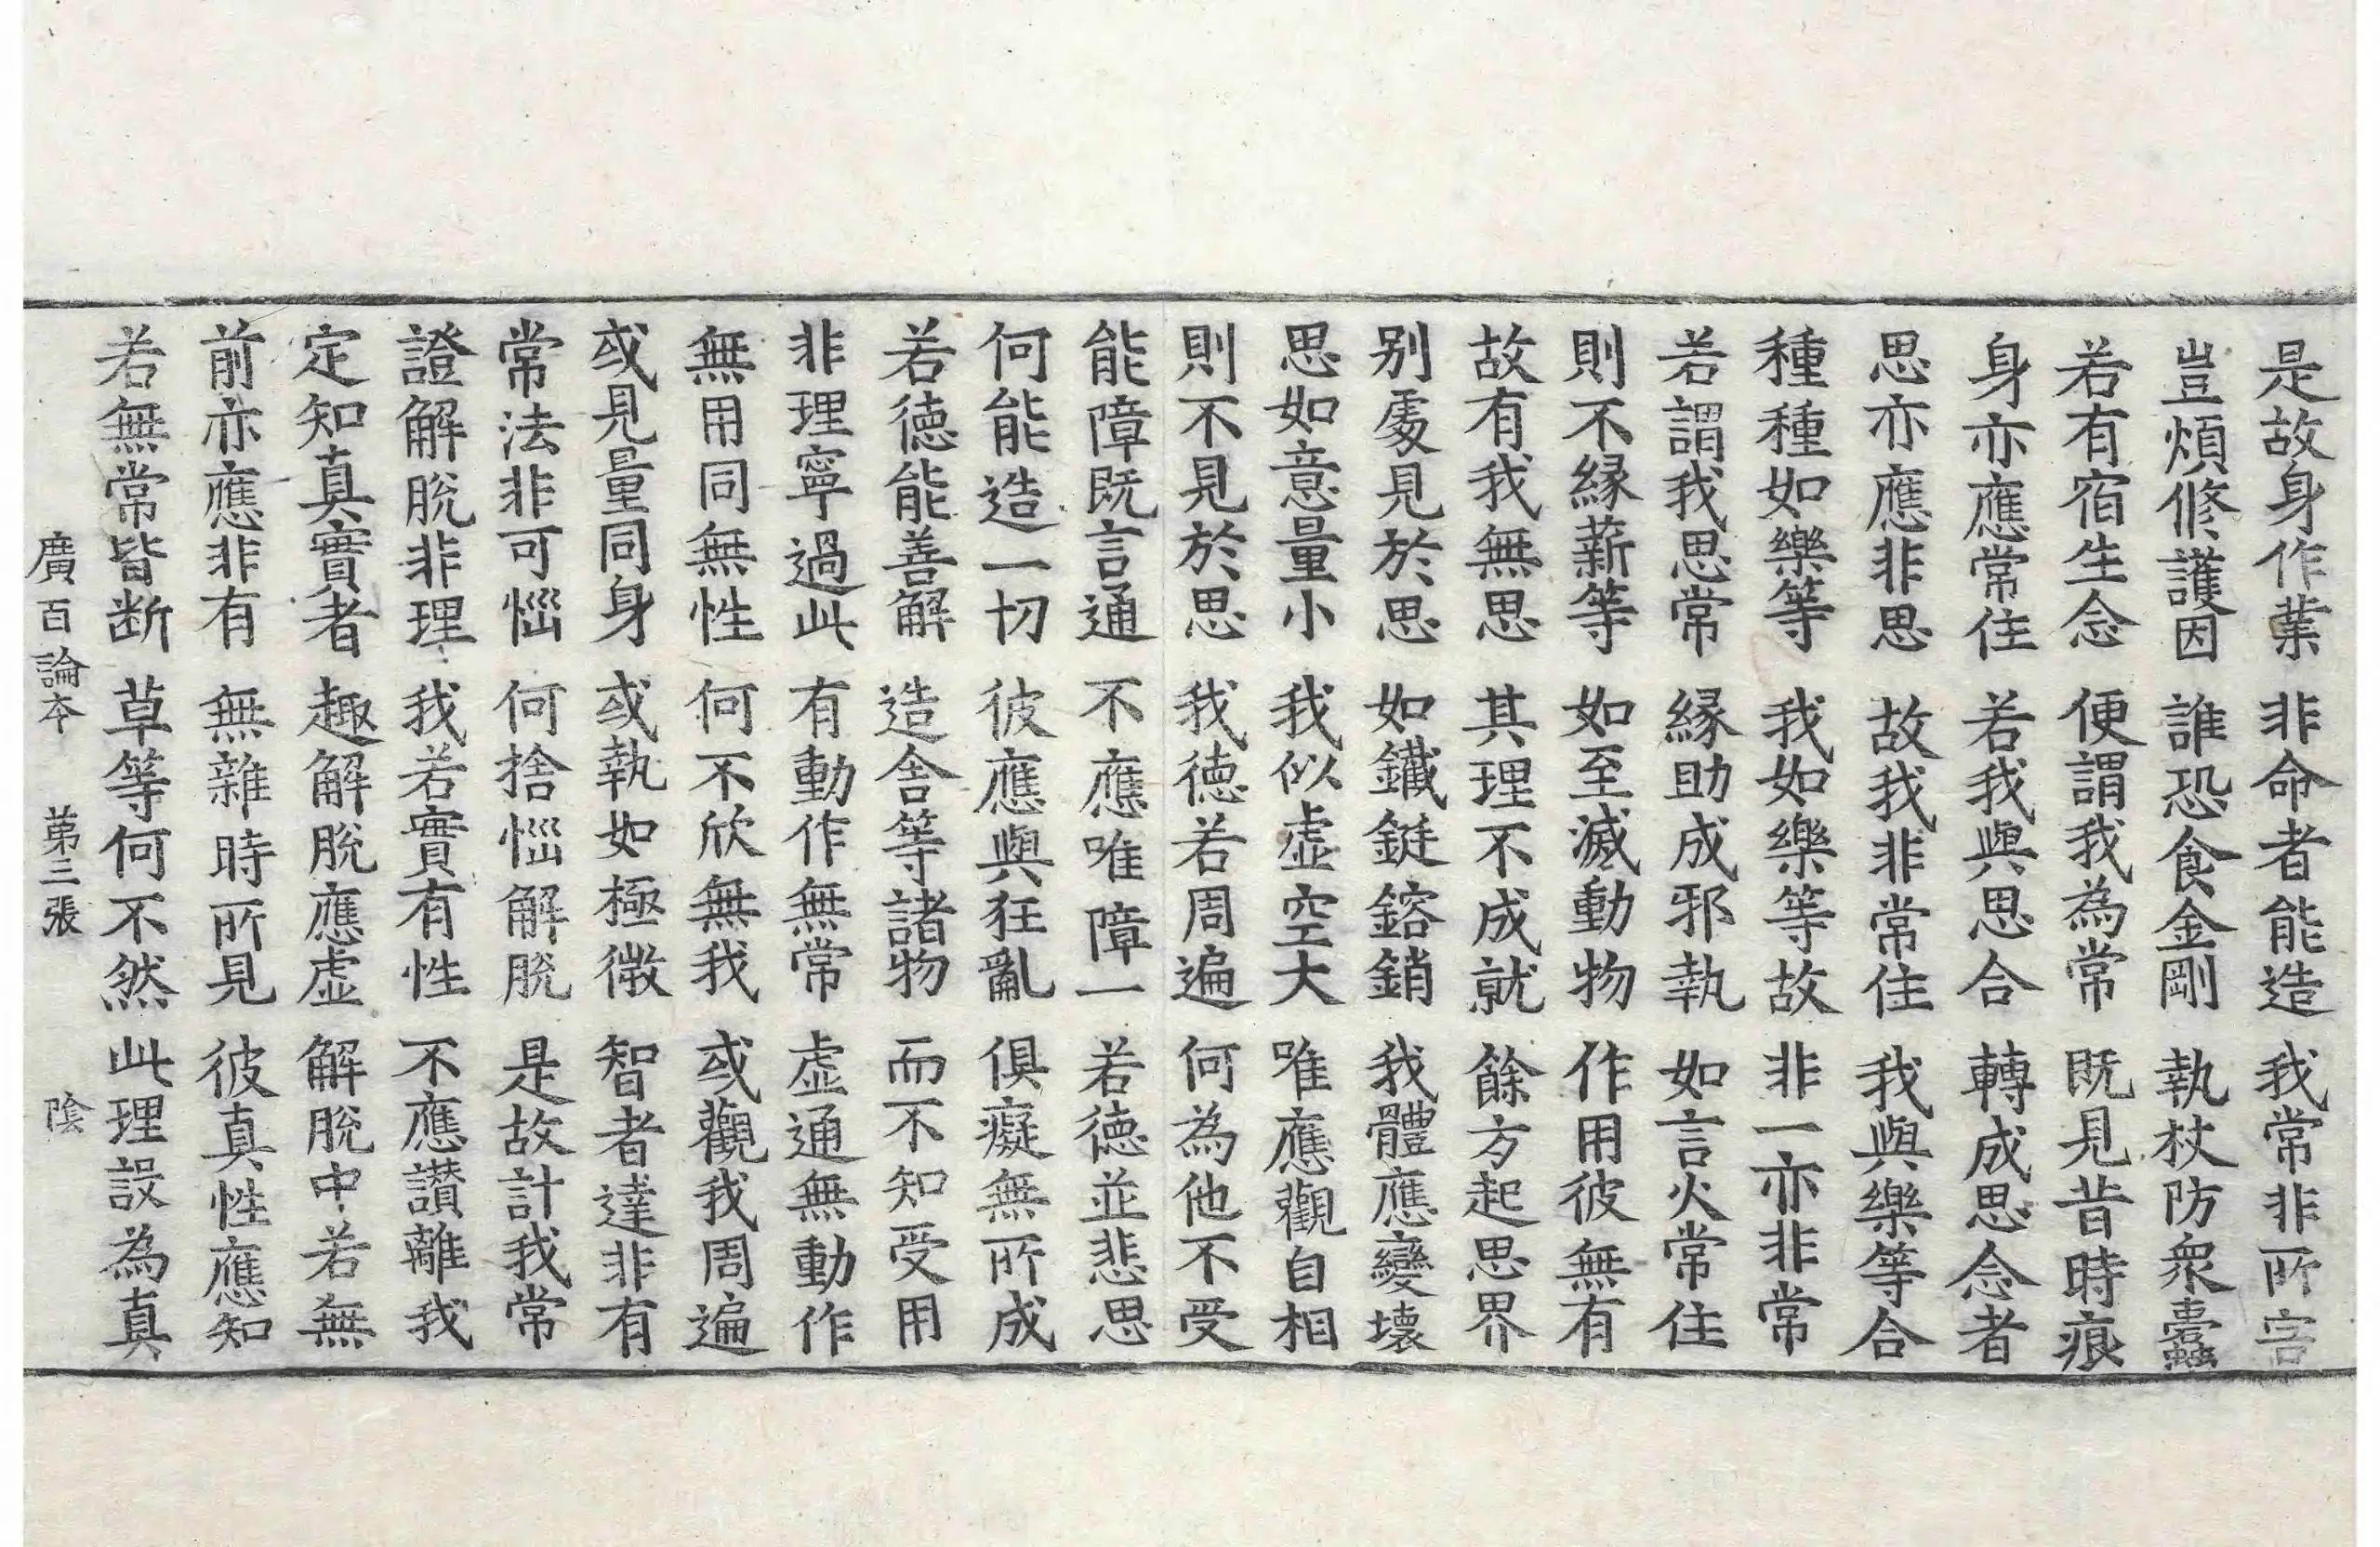 是故身作業　非命者能造　我常非所害
豈煩修護因　誰恐食金剛　執杖防衆蠹
若有宿生念　便謂我為常　既見昔時痕
身亦應常住　若我與思合　轉成思念者
思亦應非思　故我非常住　我與樂等合
種種如樂等　我如樂等故　非一亦非常
若謂我思常　縁助成邪執　如言火常住
則不縁薪等　如至滅動物　作用彼無有
故有我無思　其理不成就　餘方起思界
别處見於思　如鐵鋌鎔銷　我體應變壞
思如意量小　我似虚空大　唯應觀自相
則不見於思　我徳若周遍　何為他不受
能障既言通　不應唯障一　若徳並悲思
何能造一切　彼應與狂亂　俱癡無所成
若徳能善解　造舎等諸物　而不知受用
非理寧過此　有動作無常　虚通無動作
無用同無性　何不欣無我　或觀我周遍
或見量同身　或執如極微　智者達非有
常法非可惱　何捨惱解脫　是故計我常
證解脫非理　我若實有性　不應讃離我
定知真實者　趣解脫應虚　解脫中若無
前亦應非有　無雜時所見　彼真性應知
若無常皆断　草等何不然　此理設為真
廣百論本　第三張　陰